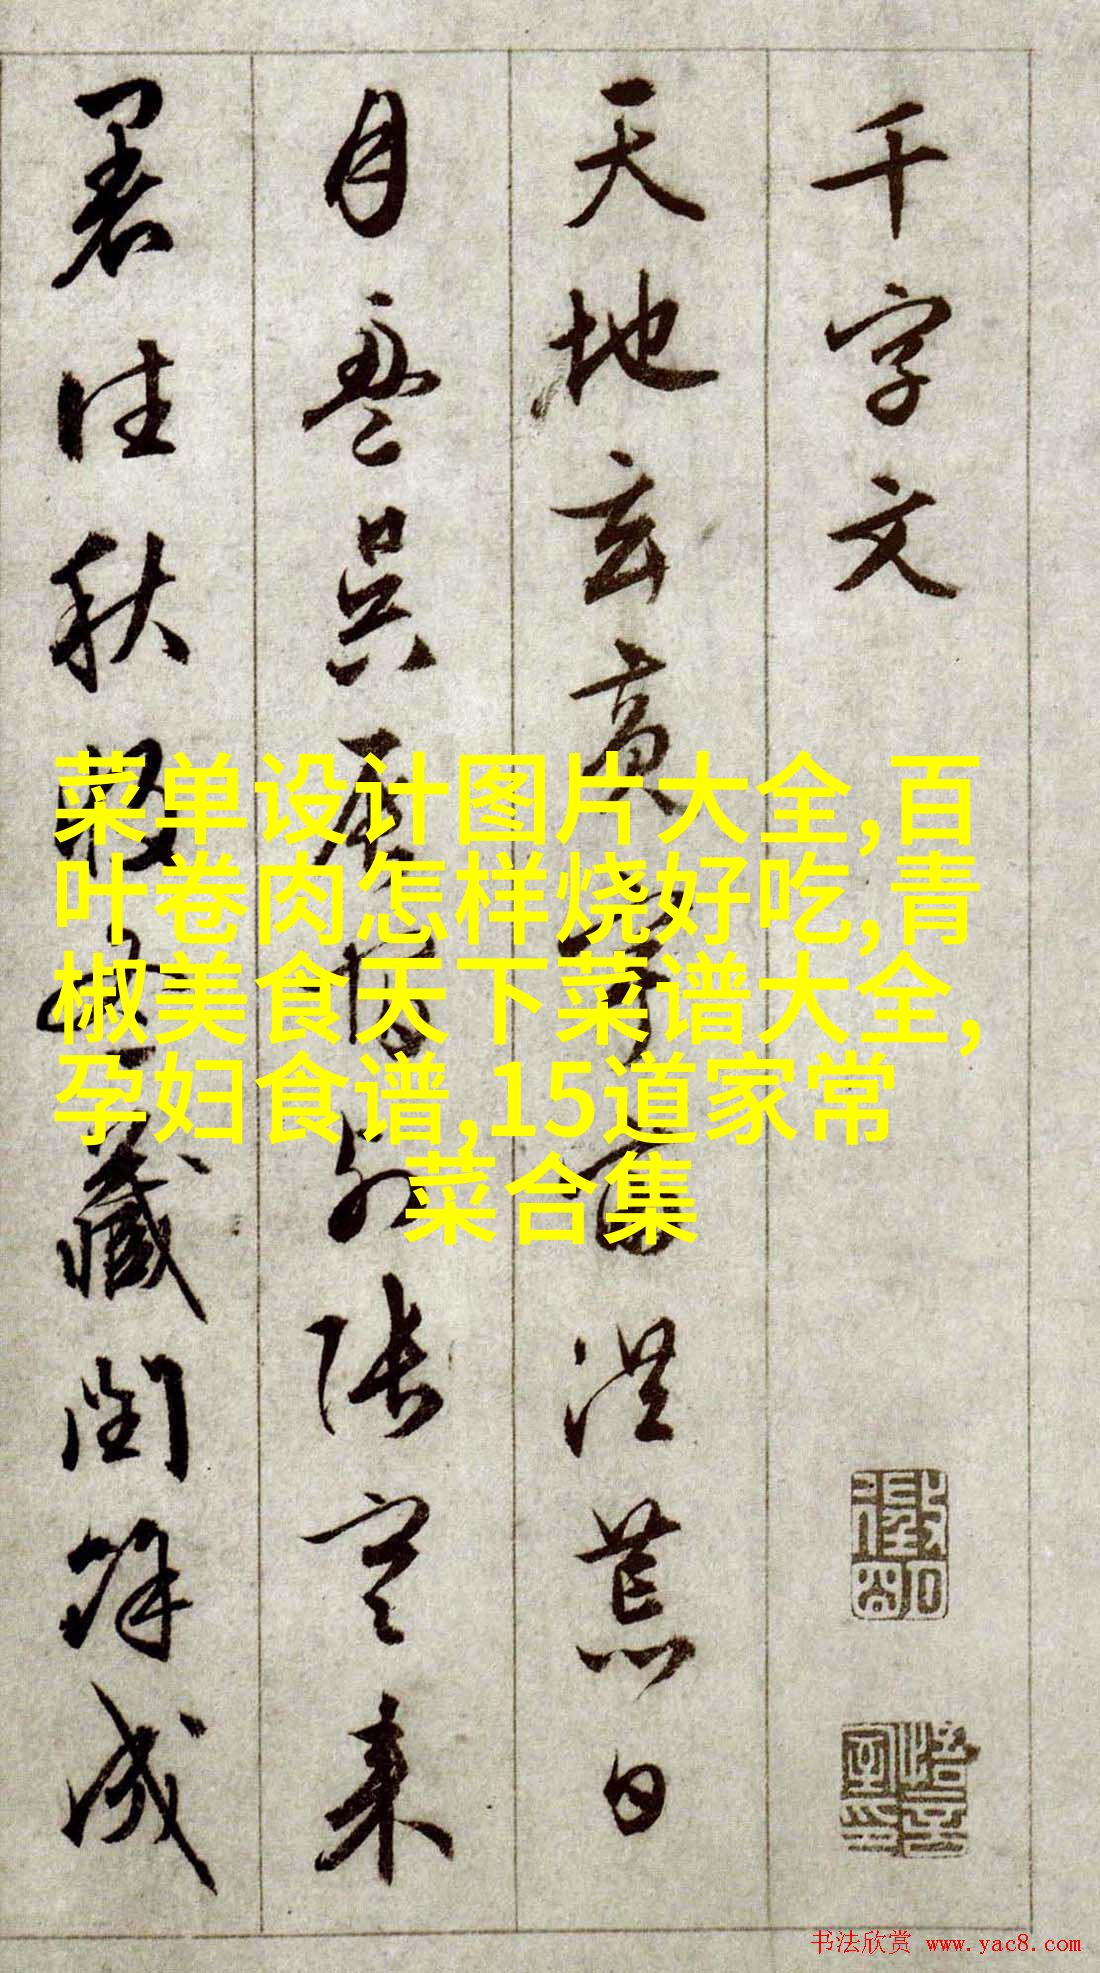 千字文
天地玄黄宇宙洪荒日
月盈昃辰宿列张寒来
暑往秋收冬藏闰馀成
菜单设计图片大全,百
叶卷肉怎样烧好吃,青
椒美食天下菜谱大全,
孕妇食谱,15道家常
菜合集
书法欣赏 www.yac8.com